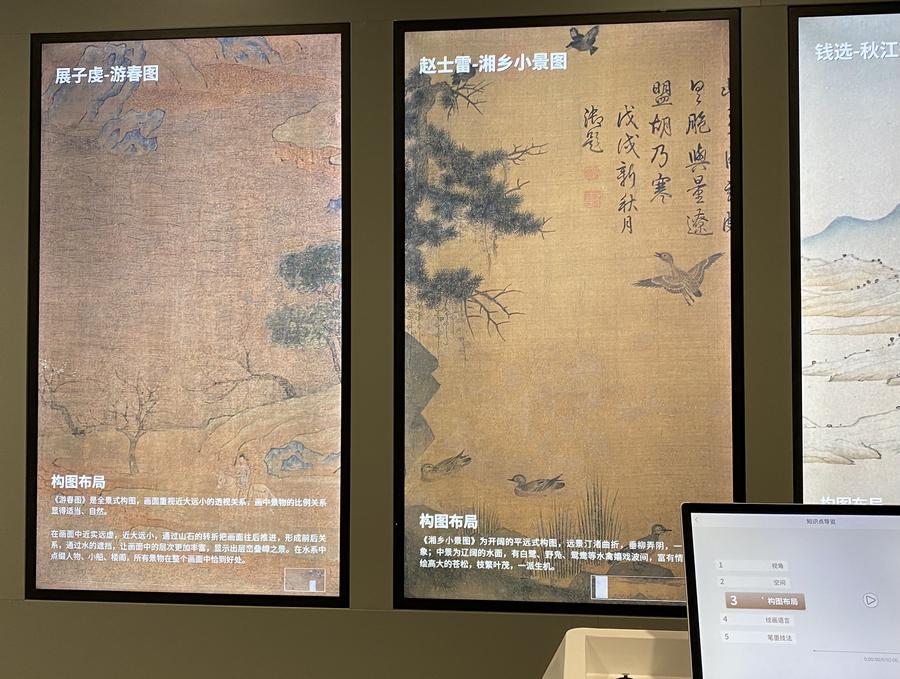 展子虔-游春图
构图布局
《游春图》是全景式构图，画面重视近大远小的透视关系，画中景物的比例关系
显得适当、自然。
在画面中近实远虚，近大远小，通过山石的转折把画面往后推进，形成前后关
系，通过水的遮挡，让画面中的层次更加丰富，显示出层峦叠嶂之景。在水系中
点缀人物、小船、楼阁，所有景物在整个画面中恰到好处。
赵士雷-湘乡小景图
盟胡乃寒
戊戌新秋月
御题
构图布局
《湘乡小景图》为开阔的平远式构图，远景汀渚曲折，垂柳弄阴，一
象；中景为辽阔的水面，有白鹭、野凫、鸳鸯等水禽嬉戏波间，富有情
绘高大的苍松，枝繁叶茂，一派生机。
钱选-秋江
构图布局
知识点导览
1 视角
2 空间
3 构图布局
4 绘画语言
5 笔墨技法